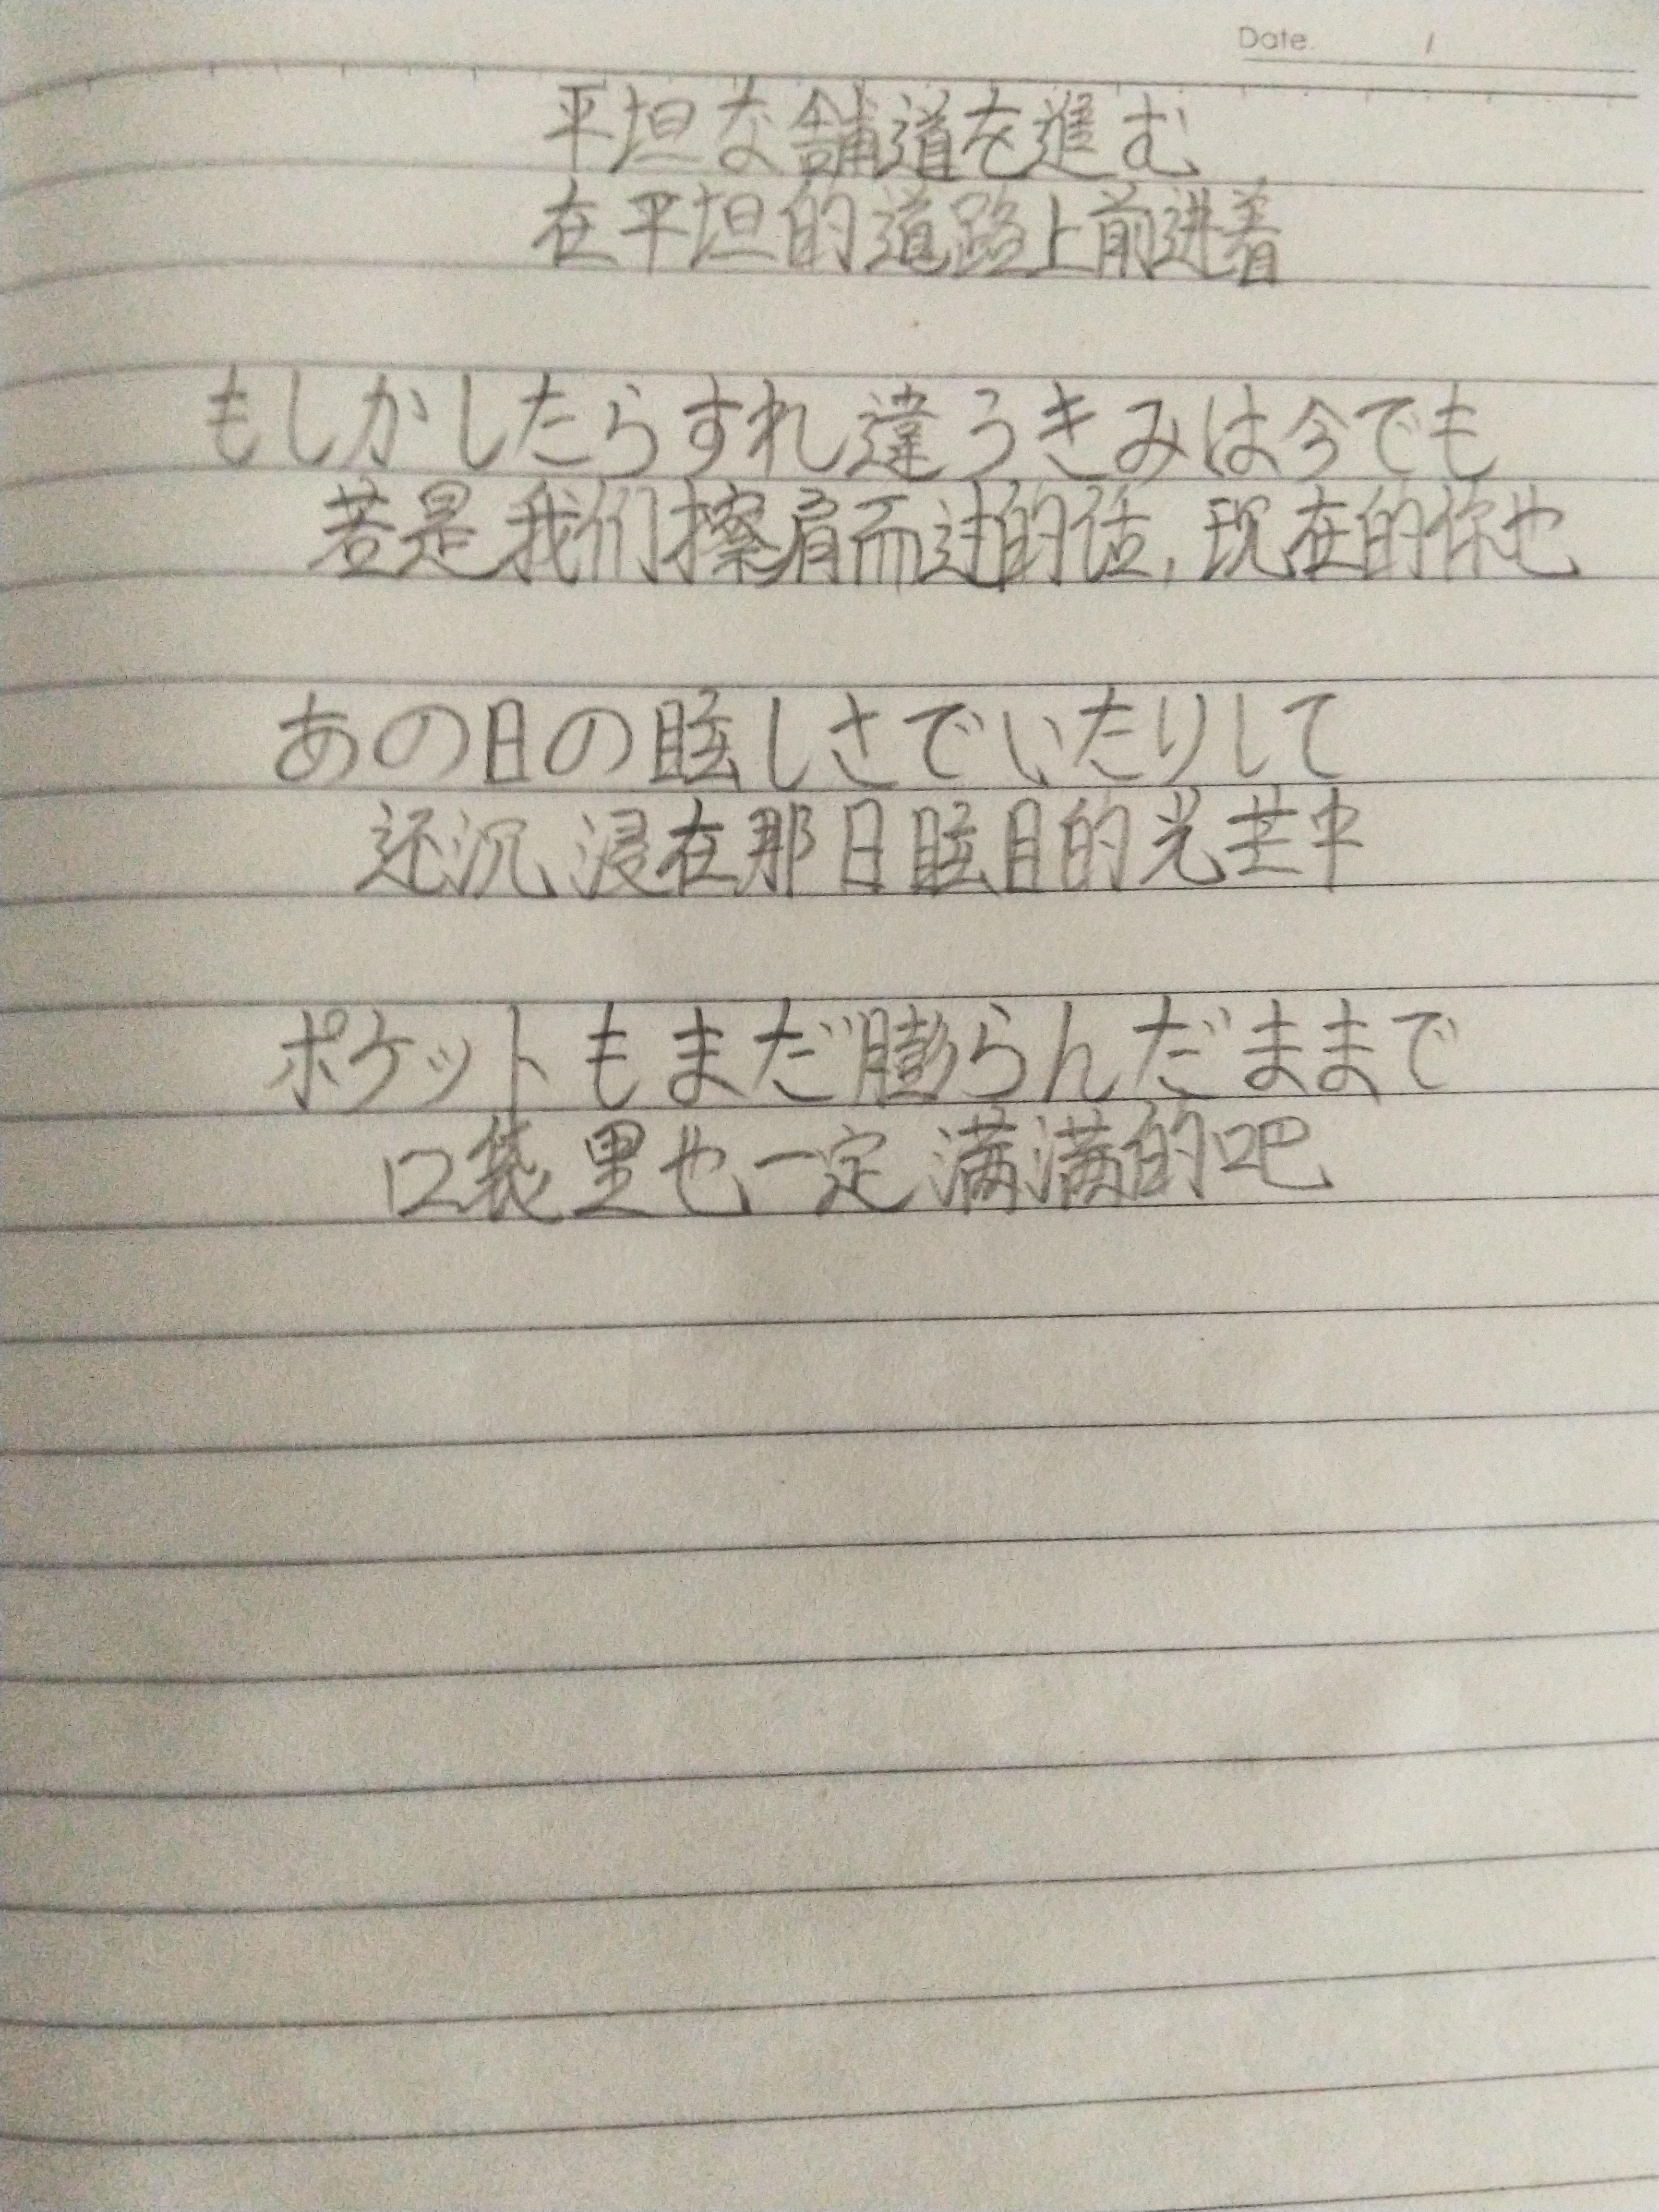 Date. /
平坦な舗道を進む
在平坦的道路上前进着
もしかしたらすれ違うきみは今でも
若是我们擦肩而过的话,现在的你也
あの日の眩しさでいたりして
还沉浸在那日眩目的光芒中
ポケットもまだ膨らんだままで
口袋里也一定满满的吧